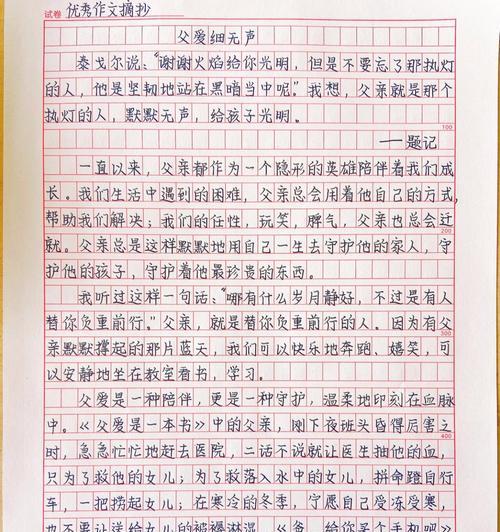 试卷 优秀作文摘抄
父爱细无声
泰戈尔说：“谢谢火焰给你光明，但是不要忘了那执灯
的人，他是坚韧地站在黑暗当中呢。”我想，父亲就是那个
执灯的人，默默无声，给孩子光明。
100
——题记
一直以来，父亲都作为一个隐形的英雄陪伴着我们成
长。我们生活中遇到的困难，父亲总会用着他自己的方式，
帮助我们解决；我们的任性，玩笑，脾气，父亲也总会迁
200
就。父亲总是这样默默地用自己一生去守护他的家人，守
护他的孩子，守护着他最珍贵的东西。
我听过这样一句话：“哪有什么岁月静好，不过是有人
替你负重前行。”父亲，就是替你负重前行的人。因为有父
300
亲默默撑起的那片蓝天，我们可以快乐地奔跑、嬉笑，可
以安静地坐在教室看书，学习。
父爱是一种陪伴，更是一种守护，温柔地印刻在血脉
中。《父爱是一本书》中的父亲，刚下夜班头昏得厉害之
400
时，急急忙忙地赶去医院，二话不说就让医生抽他的血，
只为了救他的女儿；为了救落入水中的女儿，拼命蹬自行
车，一把捞起女儿；在寒冷的冬季，宁愿自己受冻受寒，
也不要让送给女儿的被褥淋湿。《爸，给你一个手机吧》